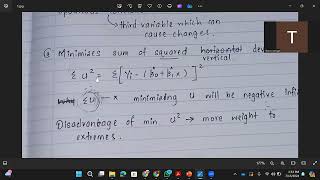 third variable which can
cause changes.
Minimises sum of squared horizontal de
vertical.
Σ u² = Σ [Yᵢ - (β₀ + β₁x)]²
Σu → x minimising u will be negative infi
Disadvantage of min. u² → more weight to
extremes.
T
177%